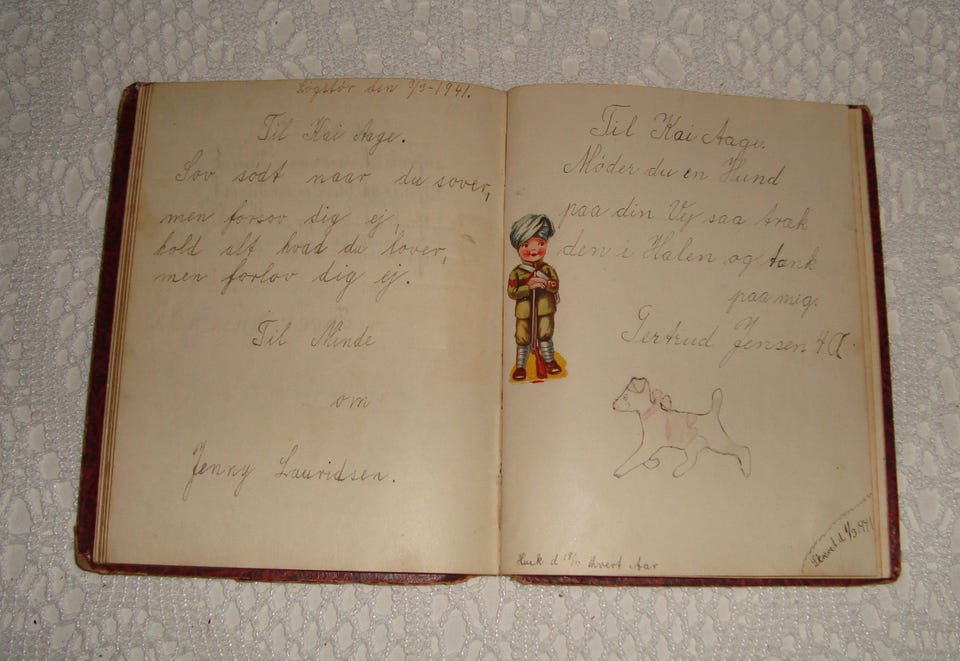 Løgstør den 7/3-1941.
Til Kai Aage.
Sov sødt naar du sover,
men forsov dig ej,
hold alt hvad du lover,
men forlov dig ej.
Til Minde
om
Jenny Lauridsen.
Til Kai Aage.
Møder du en Hund
paa din Vej saa træk
den i Halen og tænk
paa mig.
Gertrud Jensen 4A
Husk d 18/7 hvert Aar
Skrevet d 4/3.1941